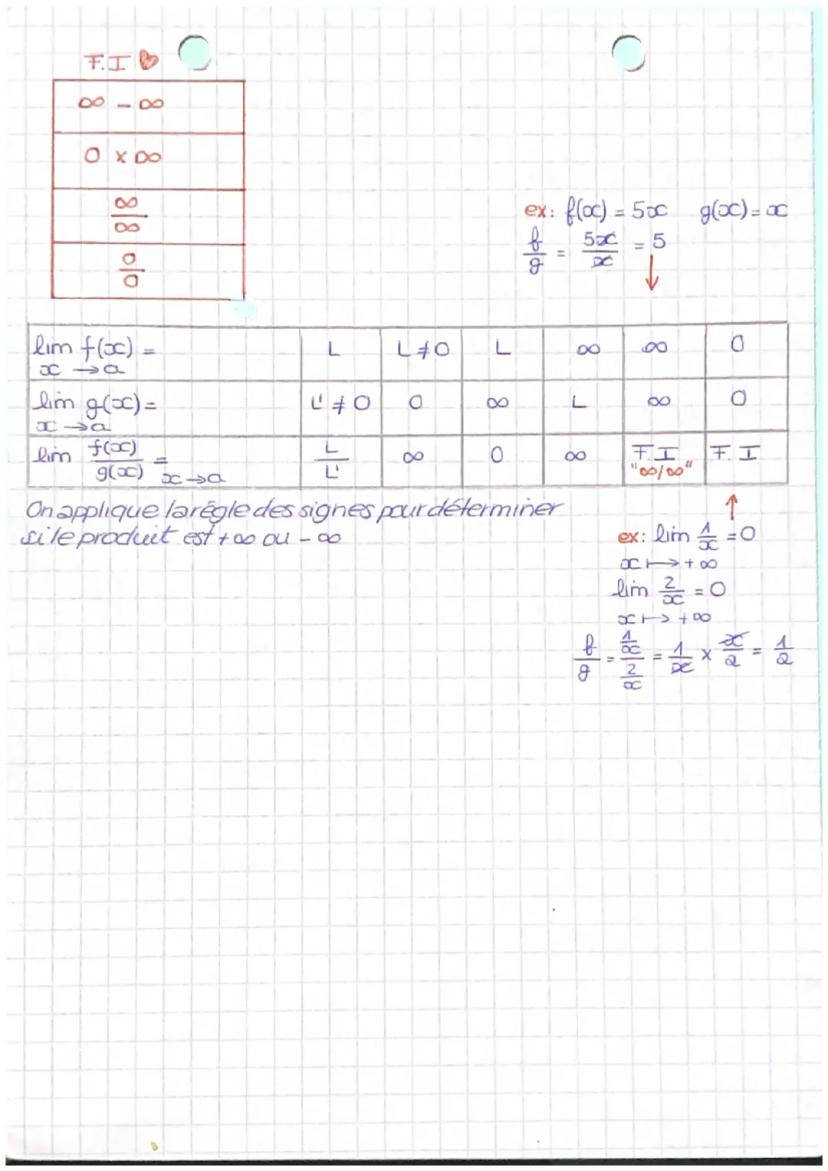 F.I
∞ - ∞
0 x ∞
∞/∞
0/0
ex: f(x) = 5x g(x) = x
f/g = 5x/x = 5
lim f(x) = L L≠0 L ∞ ∞ 0
x → a
lim g(x) = L'≠0 0 ∞ L ∞ 0
x → a
lim f(x)/g(x) = L/L' ∞ 0 ∞ F.I F.I
x → a "∞/∞"
On applique la règle des signes pour déterminer
si le produit est +∞ ou -∞
ex: lim 1/x = 0
x ↦ +∞
lim 2/x = 0
x ↦ +∞
f/g = (1/x)/(2/x) = 1/x × x/2 = 1/2